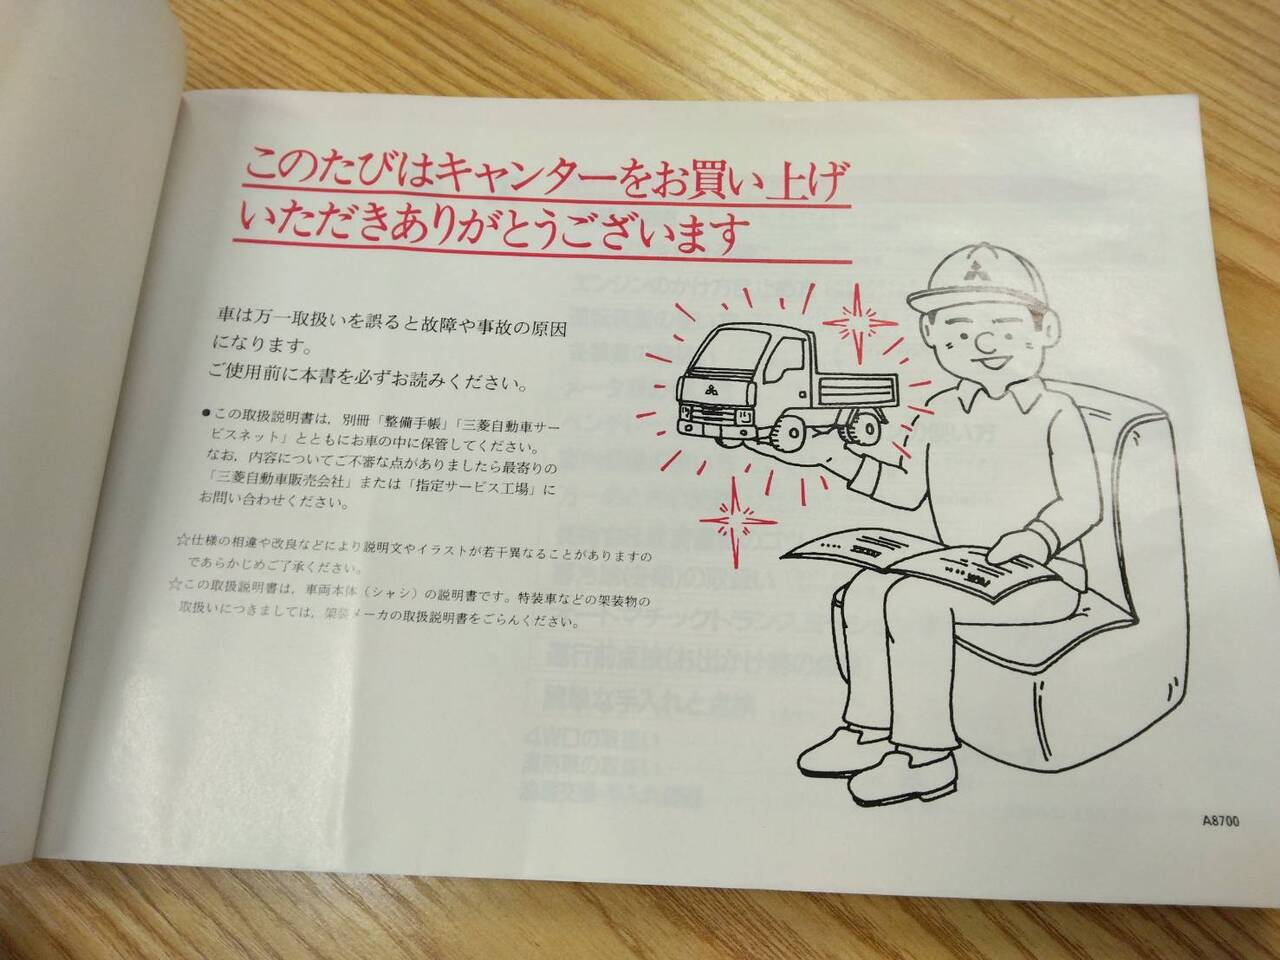 このたびはキャンターをお買い上げ
いただきありがとうございます
車は万一取扱いを誤ると故障や事故の原因
になります。
ご使用前に本書を必ずお読みください。
●この取扱説明書は，別冊「整備手帳」「三菱自動車サー
ビスネット」とともにお車の中に保管してください。
なお，内容についてご不審な点がありましたら最寄りの
「三菱自動車販売会社」または「指定サービス工場」に
お問い合わせください。
☆仕様の相違や改良などにより説明文やイラストが若干異なることがありますの
であらかじめご了承ください。
☆この取扱説明書は，車両本体（シャシ）の説明書です。特装車などの架装物の
取扱いにつきましては，架装メーカの取扱説明書をごらんください。
A8700